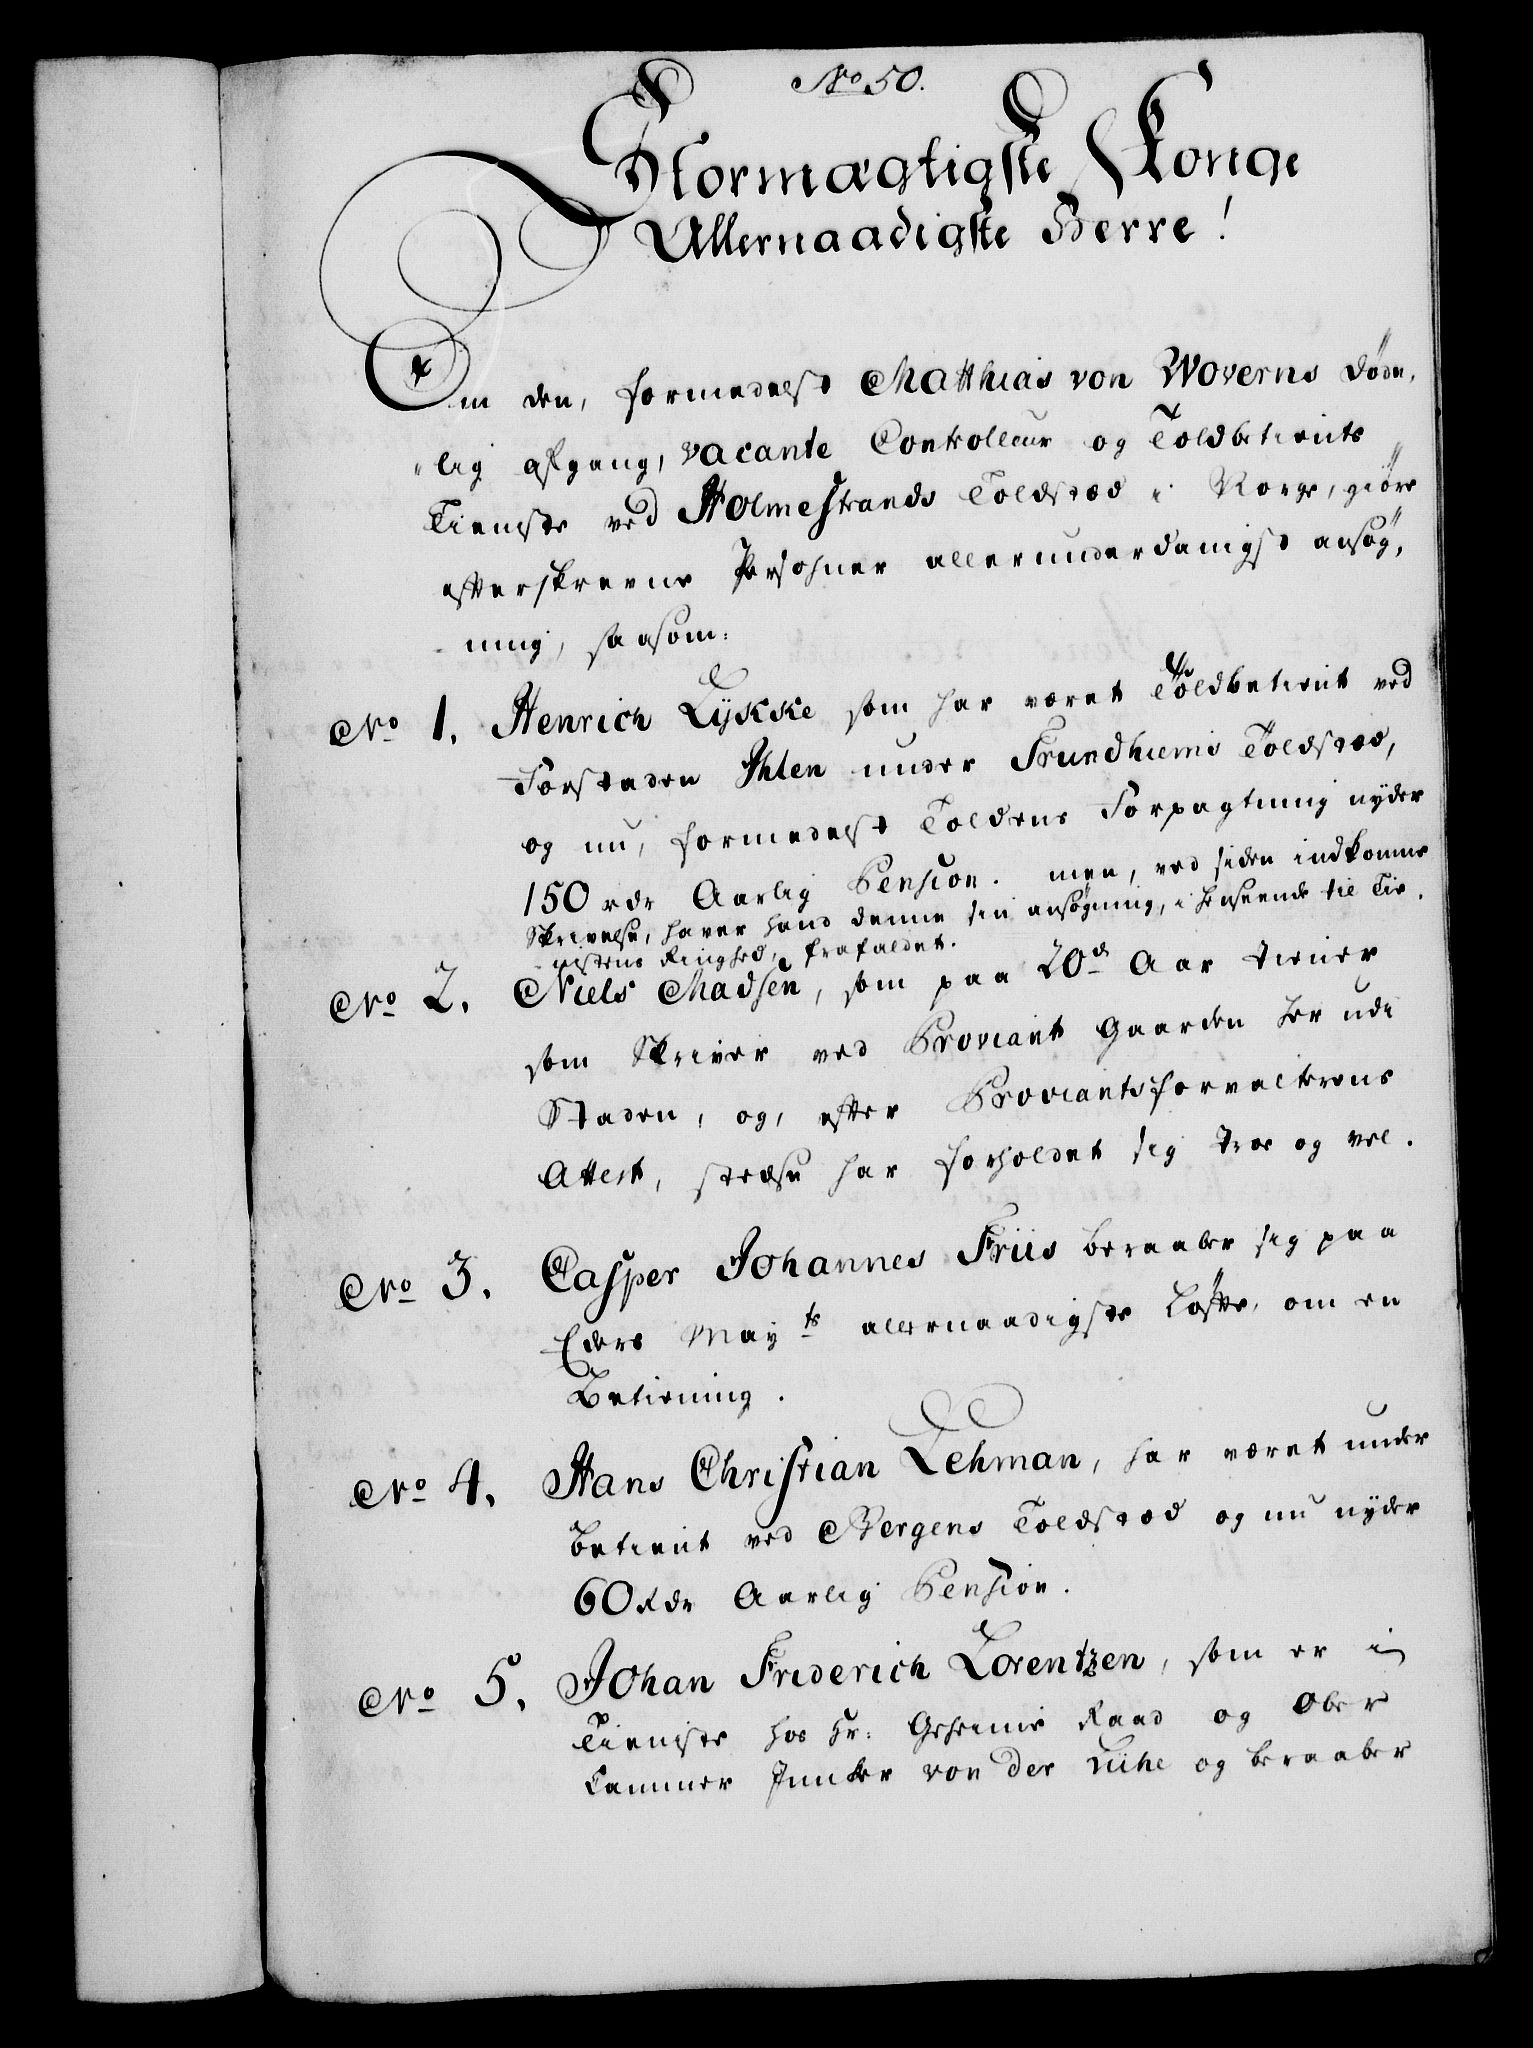 No 50.
Stormægtigste Konge
Allernaadigste Herre!
Om den, formedelst Matthias von Woverns Døde,
lig afgang, vacante Controlleur og Toldbetients
Tieniste ved Holmestrands Toldsted i Norge, giøre
efterskrevne Persohner allerunderdanigst ansøg,
ning, saasom:
No 1. Henrich Lykke som har været Toldbetient ved
Forstaden Ihlen under Trundhiems Toldsted,
og nu, formedelst Toldens Forpagtning nyder
150 rdr Aarlig Pension. men, ved siden indkomne
Skrivelse, haver hand denne sin ansøgning, i henseende til Tie,
nistens Ringhed, frafaldet.
No 2. Niels Madsen, som paa 20de Aar tiener
som Skriver ved Proviant Gaarden her udi
Staden, og, efter Proviantsforvalterens
Attest, stedse har forholdet sig troe og vel.
No 3. Casper Johannes Friis beraaber sig paa
Eders Mayts allernaadigste Løfte, om en
Betiening.
No 4. Hans Christian Lehman, har været under
betient ved Bergens Toldsted og nu nyder
60 Rdr Aarlig Pension.
No 5. Johan Friderich Lorentzen, som er i
Tieniste hos Hr: Geheime Raad og Ober
Cammer Junker von der Lühe og beraaber